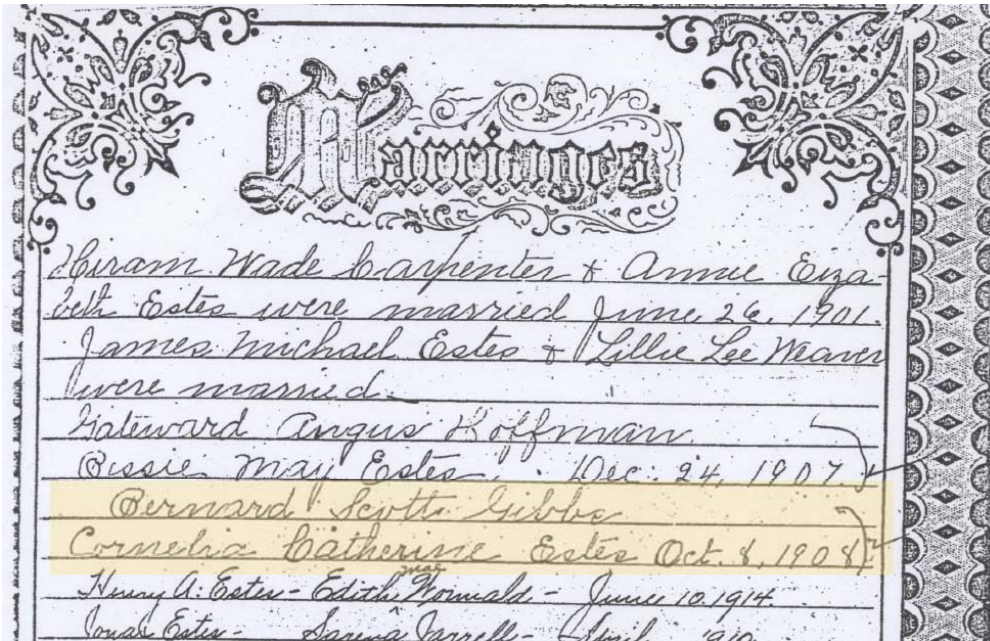 Marriages
Hiram Wade Carpenter & Annie Eiza
beth Estes were married June 26, 1901.
James Michael Estes & Lillie Lee Weaver
were married
Gateward Angus Hoffman
Bessie May Estes. Dec. 24, 1907.
Bernard Scott Gibbs
Cornelia Catherine Estes Oct. 8, 1908
Henry A. Estes - Edith May Wormald - June 10. 1914.
Jonas Estes - Jarrell - April 1910